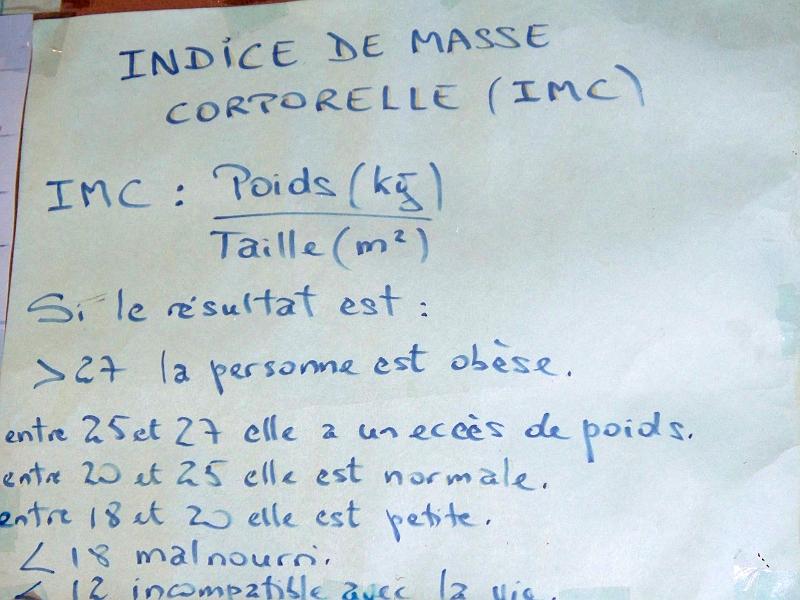 INDICE DE MASSE
CORPORELLE (IMC)
IMC : Poids (kg)
Taille (m²)
Si le résultat est :
> 27 la personne est obèse.
entre 25 et 27 elle a un eccès de poids.
entre 20 et 25 elle est normale.
entre 18 et 20 elle est petite.
< 18 malnourri.
< 12 incompatible avec la vie.